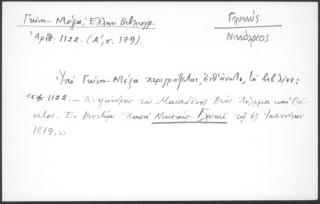 Γκίνη - Μέξα, Ἑλλην. Βιβλιογρ.
Ἀριθ. 1122. (Α', σ. 179).
Γλυκύς
Νικόλαος
Ὑπό Γκίνη - Μέξα περιγράφεται, τό βιβλίον:
«* 1122. - Ἀλεξάνδρου τοῦ Μακεδόνος Βίος Πόλεμοι καί Θά-
νατος. Ἐν Βενετίᾳ παρά Νικολάῳ Γλυκεῖ τῷ ἐξ Ἰωαννίνων
1819.»